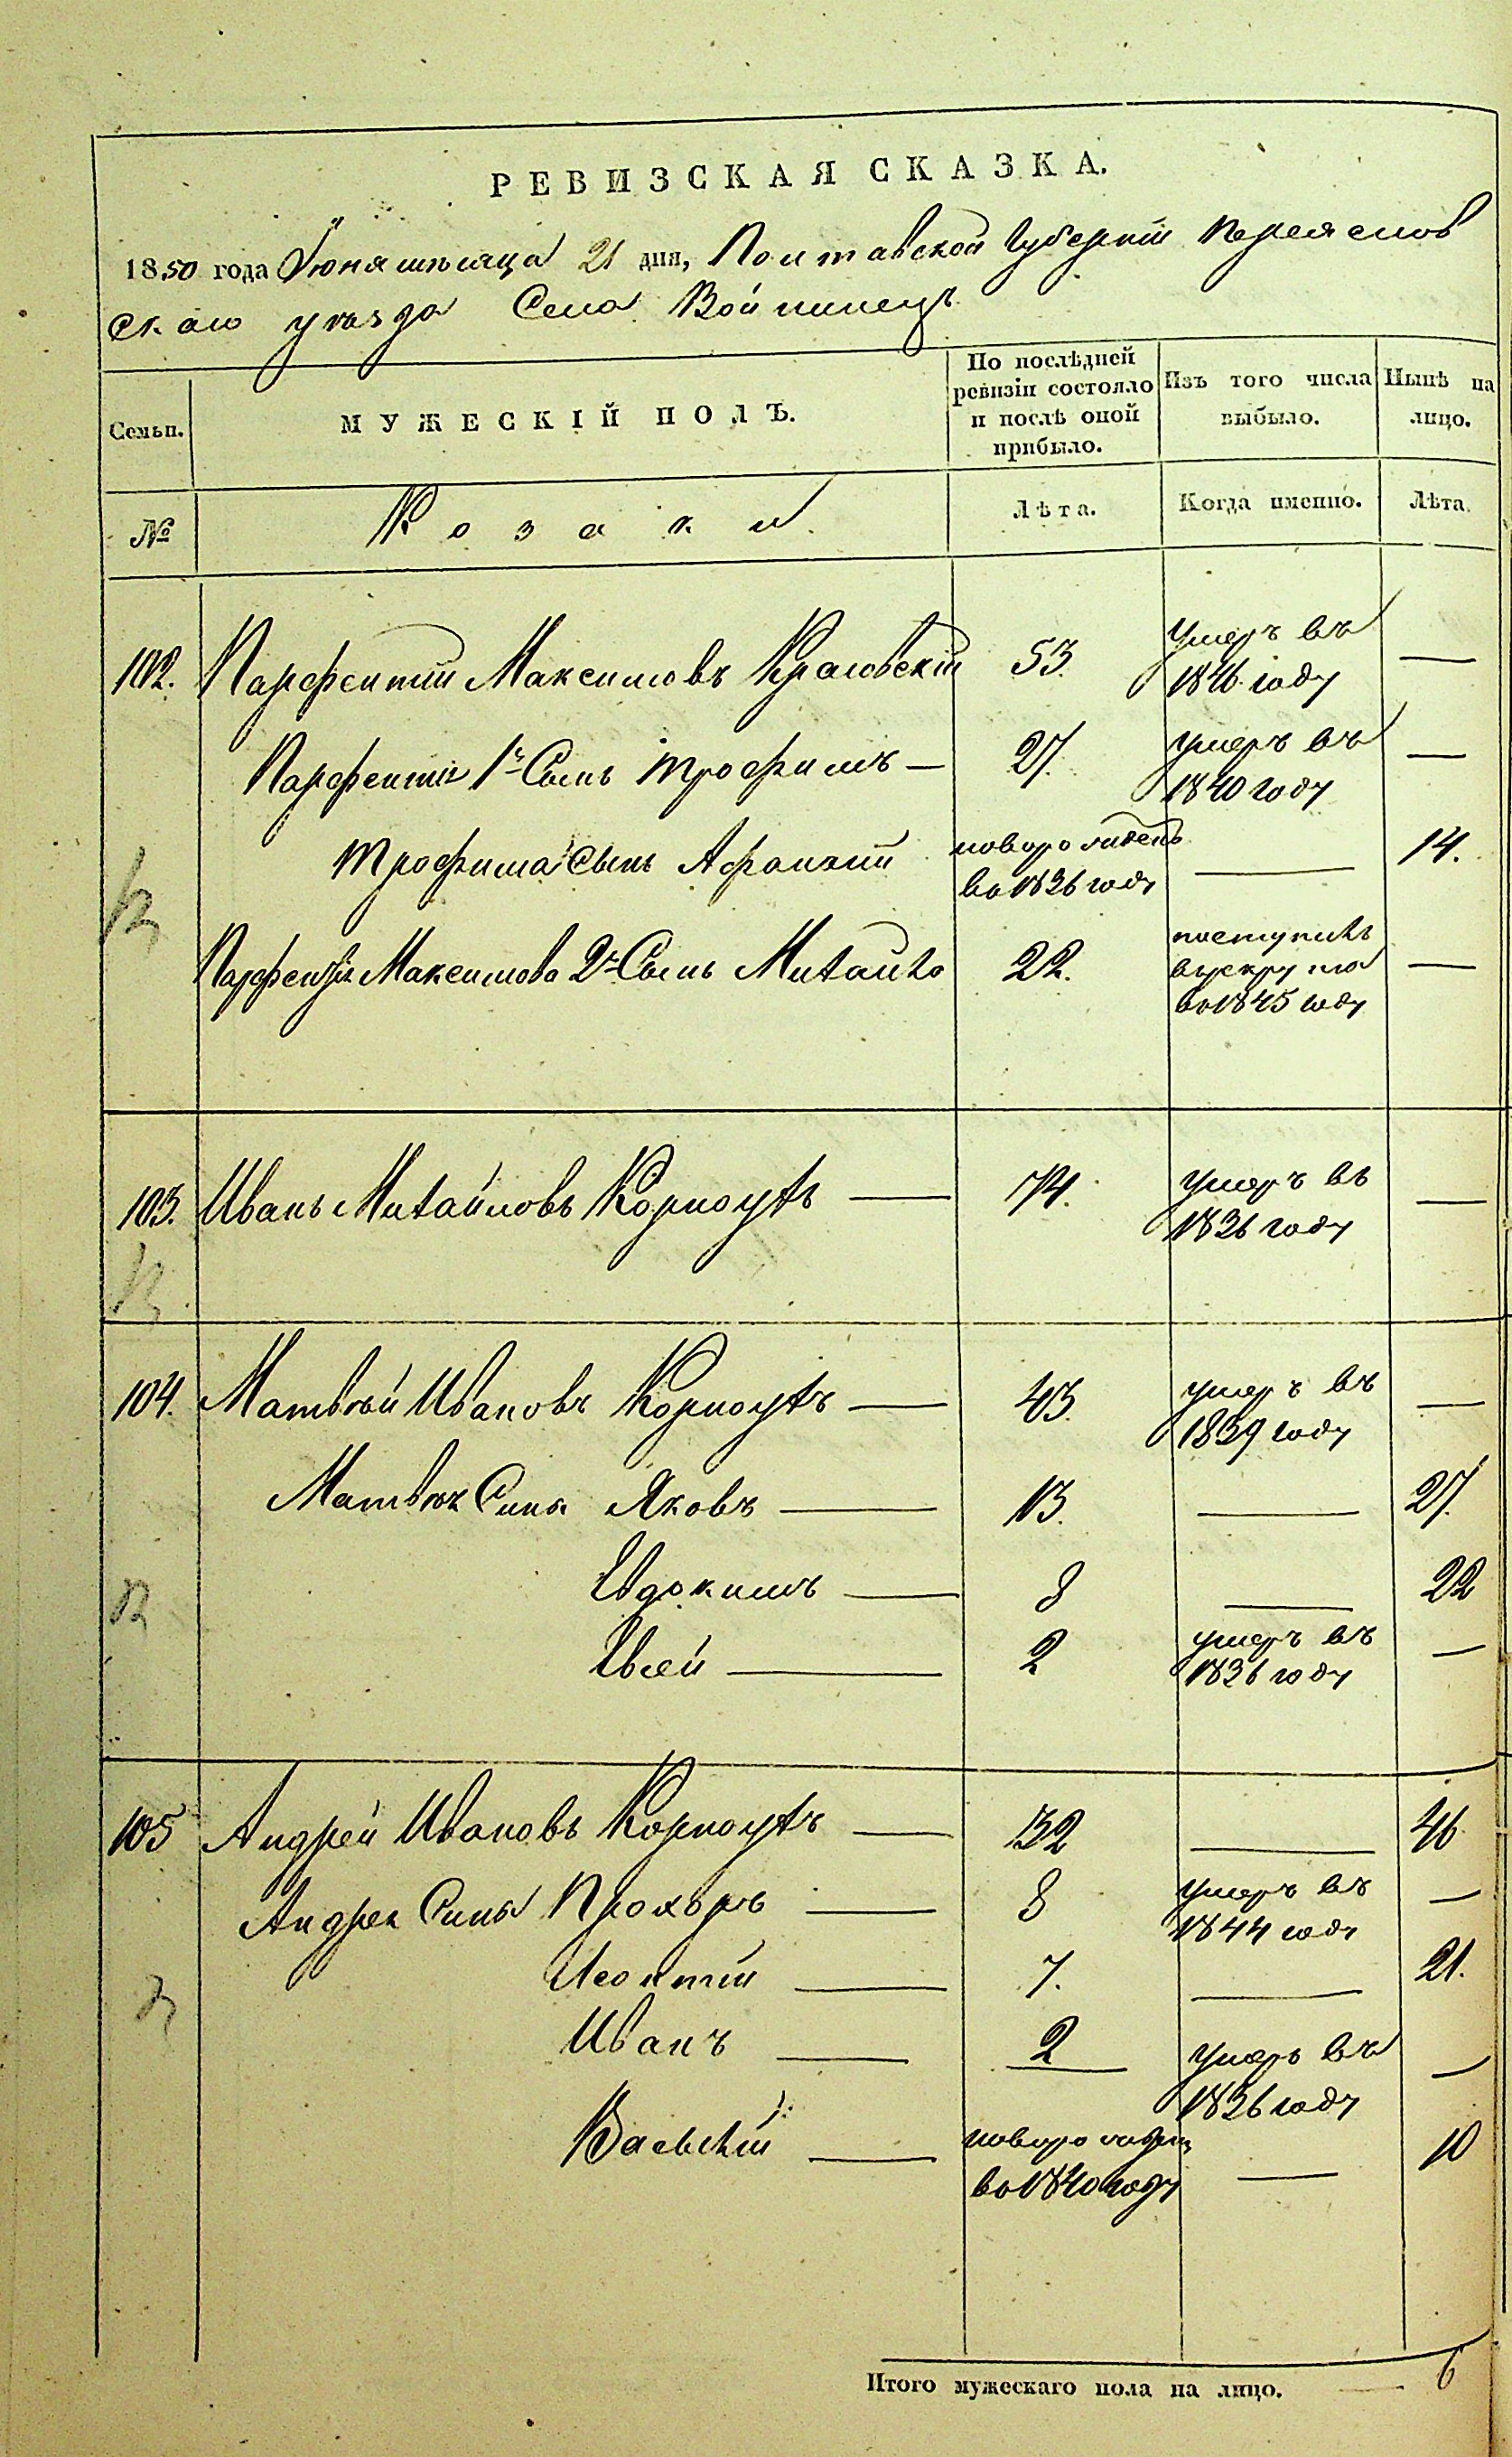 РЕВИЗСКАЯ СКАЗКА.
1850 года Іюня мѣсяца 21 дня, Полтавской Губерніи Переяслов
скаго уѣзда Села Войтинецъ
Семьи. МУЖЕСКІЙ ПОЛЪ. По послѣдней ревизіи состояло и послѣ оной прибыло. Изъ того числа выбыло. Нынѣ на лицо.
№ Козаки Лѣта. Когда именно. Лѣта.
102. Парфентий Максимовъ 53. умеръ въ 1846 году —
Парфентія 1й Сынъ Трофимъ — 27. умеръ въ 1840 году —
Трофима Сынъ Афанзий новорожденъ во 1836 году — 14.
Парфентія Максимова 2й Сынъ Михайло 22. поступилъ врекруты во 1845 году —
103. Иванъ Михайловъ Корноухъ — 74. умеръ въ 1836 году —
104. Матвѣй Ивановъ Корноухъ — 43. умеръ въ 1839 году —
Матвѣя Сыны Яковъ — 13. — 27.
Евдокимъ — 8 — 22
Евсей — 2 умеръ въ 1836 году —
105 Андрей Ивановъ Корноухъ — 32 — 46
Андрея Сыны Прохъръ — 8 умеръ въ 1844 году —
Леонтий — 7. — 21.
Иванъ — 2 умеръ въ 1836 году —
Василий — новорожденъ во 1840 году — 10
Итого мужескаго пола на лицо. — 6